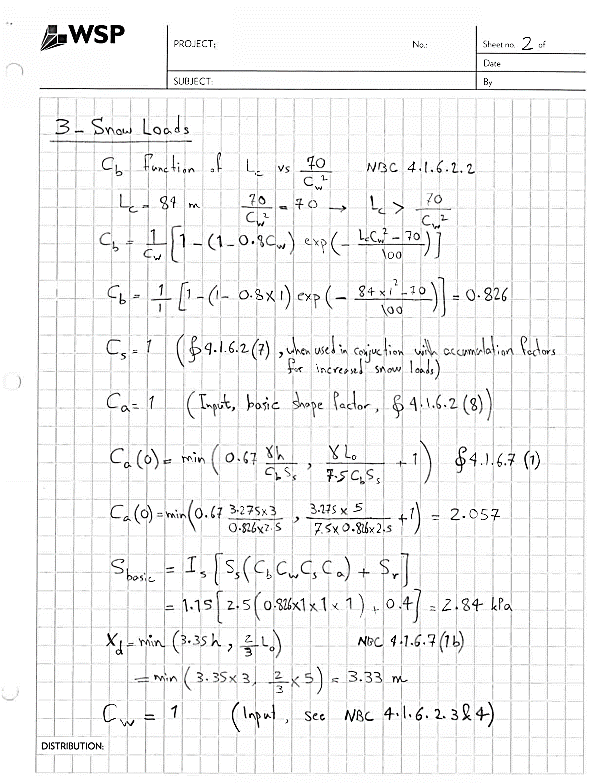 WSP
PROJECT:
No.:
Sheet no. 2 of
Date
SUBJECT:
By
3 - Snow Loads
C_b Function of L_c vs 70/C_w² NBC 4.1.6.2.2
L_c = 84 m 70/C_w² = 70 → L_c > 70/C_w²
C_b = 1/C_w [1 - (1 - 0.8C_w) exp(- (L_cC_w² - 70)/100)]
C_b = 1/1 [1 - (1 - 0.8×1) exp(- (84×1² - 70)/100)] = 0.826
C_s = 1 (§4.1.6.2(7), when used in conjuction with accumulation factors
for increased snow loads)
C_a = 1 (Input, basic shape factor, § 4.1.6.2(8))
C_a(0) = min (0.67 γh/C_bS_s , γL_o/7.5C_bS_s + 1) §4.1.6.7 (1)
C_a(0) = min(0.67 3.275×3/0.826×2.5 , 3.275×5/7.5×0.826×2.5 + 1) = 2.057
S_basic = I_s [S_s(C_bC_wC_sC_a) + S_r]
= 1.15[2.5(0.826×1×1×1) + 0.4] = 2.84 kPa
X_d = min (3.35h , 2/3 L_o) NBC 4.1.6.7(1b)
= min (3.35×3, 2/3 × 5) = 3.33 m
C_w = 1 (Input, see NBC 4.1.6.2.3&4)
DISTRIBUTION: